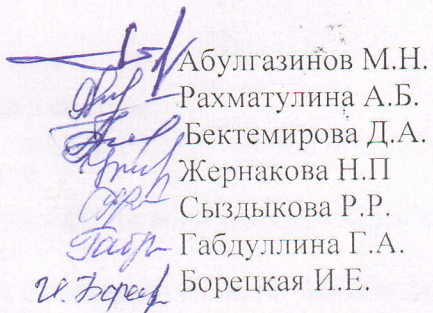 Абулгазинов М.Н.
Рахматулина А.Б.
Бектемирова Д.А.
Жернакова Н.П
Сыздыкова Р.Р.
Габдуллина Г.А.
Борецкая И.Е.